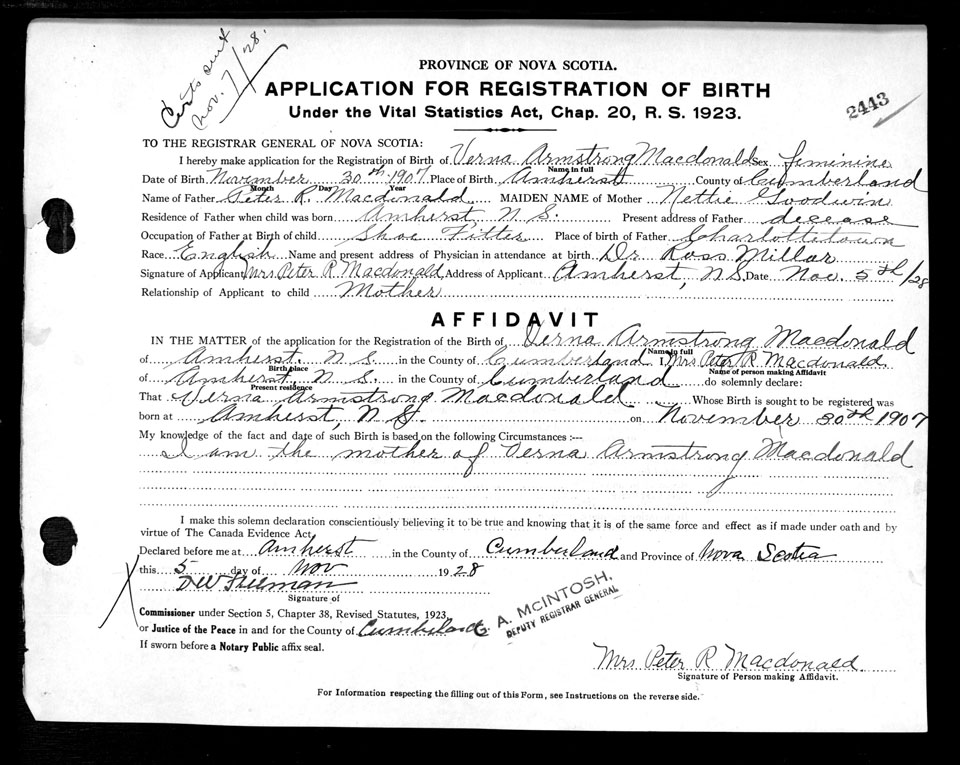 Certs sent
Nov. 7/28.
PROVINCE OF NOVA SCOTIA.
APPLICATION FOR REGISTRATION OF BIRTH
Under the Vital Statistics Act, Chap. 20, R. S. 1923.
2443
TO THE REGISTRAR GENERAL OF NOVA SCOTIA:
I hereby make application for the Registration of Birth of Verna Armstrong Macdonald Sex feminine
Name in full
Date of Birth November 30th 1907 Place of Birth Amherst County of Cumberland
Month Day Year
Name of Father Peter R. Macdonald MAIDEN NAME of Mother Nettie Goodwin
Residence of Father when child was born Amherst N. S. Present address of Father decease
Occupation of Father at Birth of child Shoe Fitter Place of birth of Father Charlottetown
Race English Name and present address of Physician in attendance at birth Dr Ross Millar
Signature of Applicant Mrs Peter R Macdonald Address of Applicant Amherst, N.S. Date Nov. 5th/28
Relationship of Applicant to child Mother
AFFIDAVIT
IN THE MATTER of the application for the Registration of the Birth of Verna Armstrong Macdonald
Name in full
of Amherst. N. S. in the County of Cumberland I, Mrs Peter R Macdonald
Birth place Name of person making Affidavit
of Amherst, N. S. in the County of Cumberland do solemnly declare:
Present residence
That Verna Armstrong Macdonald Whose Birth is sought to be registered was
born at Amherst, N. S. on November 30th 1907
My knowledge of the fact and date of such Birth is based on the following Circumstances :—
I am the mother of Verna Armstrong Macdonald
I make this solemn declaration conscientiously believing it to be true and knowing that it is of the same force and effect as if made under oath and by
virtue of The Canada Evidence Act,
Declared before me at Amherst in the County of Cumberland and Province of Nova Scotia
this 5 day of Nov 1928
Freeman
Signature of
Commissioner under Section 5, Chapter 38, Revised Statutes, 1923,
or Justice of the Peace in and for the County of Cumberland
A. McINTOSH,
DEPUTY REGISTRAR GENERAL
If sworn before a Notary Public affix seal.
Mrs Peter R Macdonald
Signature of Person making Affidavit.
For Information respecting the filling out of this Form, see Instructions on the reverse side.